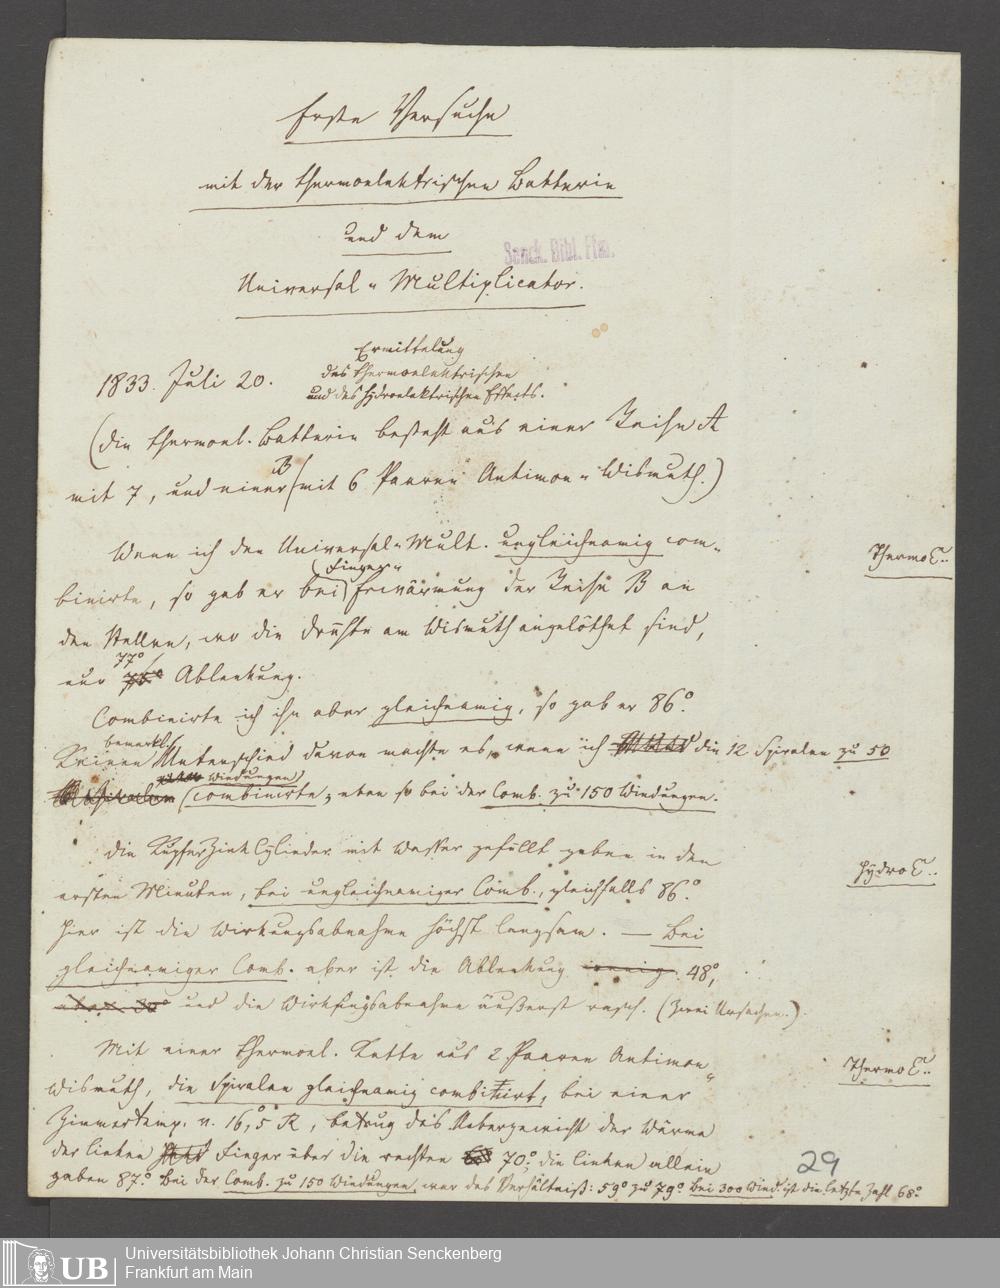 Erste Versuche
mit der thermoelektrischen Batterie
und dem
Universal-Multiplicator.
Senck. Bibl. Ffm.
1833. Juli 20.
Ermittelung
des thermoelektrischen
und des hydroelektrischen Effects.
(die thermoel. Batterie besteht aus einer Reihe A
mit 7, und einer B (mit 6 Paaren Antimon-Wismuth.)
Wenn ich den Universal-Mult. ungleichnamig com-
binirte, so gab er bei (Finger-) Erwärmung der Reihe B an
den Stellen, wo die Drähte am Wismuth angelöthet sind,
nur 77° Ablenkung.
Combinirte ich ihn aber gleichnamig, so gab er 86°.
Keinen bemerkb. Unterschied davon machte es, wenn ich die 12 Spiralen zu 50
Windungen combinirte; eben so bei der Comb. zu 150 Windungen.
Thermo E..
Die KupferZink Cylinder mit Wasser gefüllt geben in den
ersten Minuten, bei ungleichnamiger Comb., gleichfalls 86°.
Hier ist die Wirkungsabnahme höchst langsam. — Bei
gleichnamiger Comb. aber ist die Ablenkung 48°,
und die Wirkungsabnahme äußerst rasch. (Zwei Ursachen.)
Hydro E..
Mit einer thermoel. Kette aus 2 Paaren Antimon-
Wismuth, die Spiralen gleichnamig combinirt, bei einer
Zimmertemp. v. 16,°5 R, betrug das Uebergewicht der Wärme
der linken Finger über die rechten 70°; die linken allein
gaben 87°. Bei der Comb. zu 150 Windungen, war das Verhältniß: 59° zu 79° Bei 300 Wind. ist die letzte Zahl 68°
Thermo E..
29
UB
Universitätsbibliothek Johann Christian Senckenberg
Frankfurt am Main